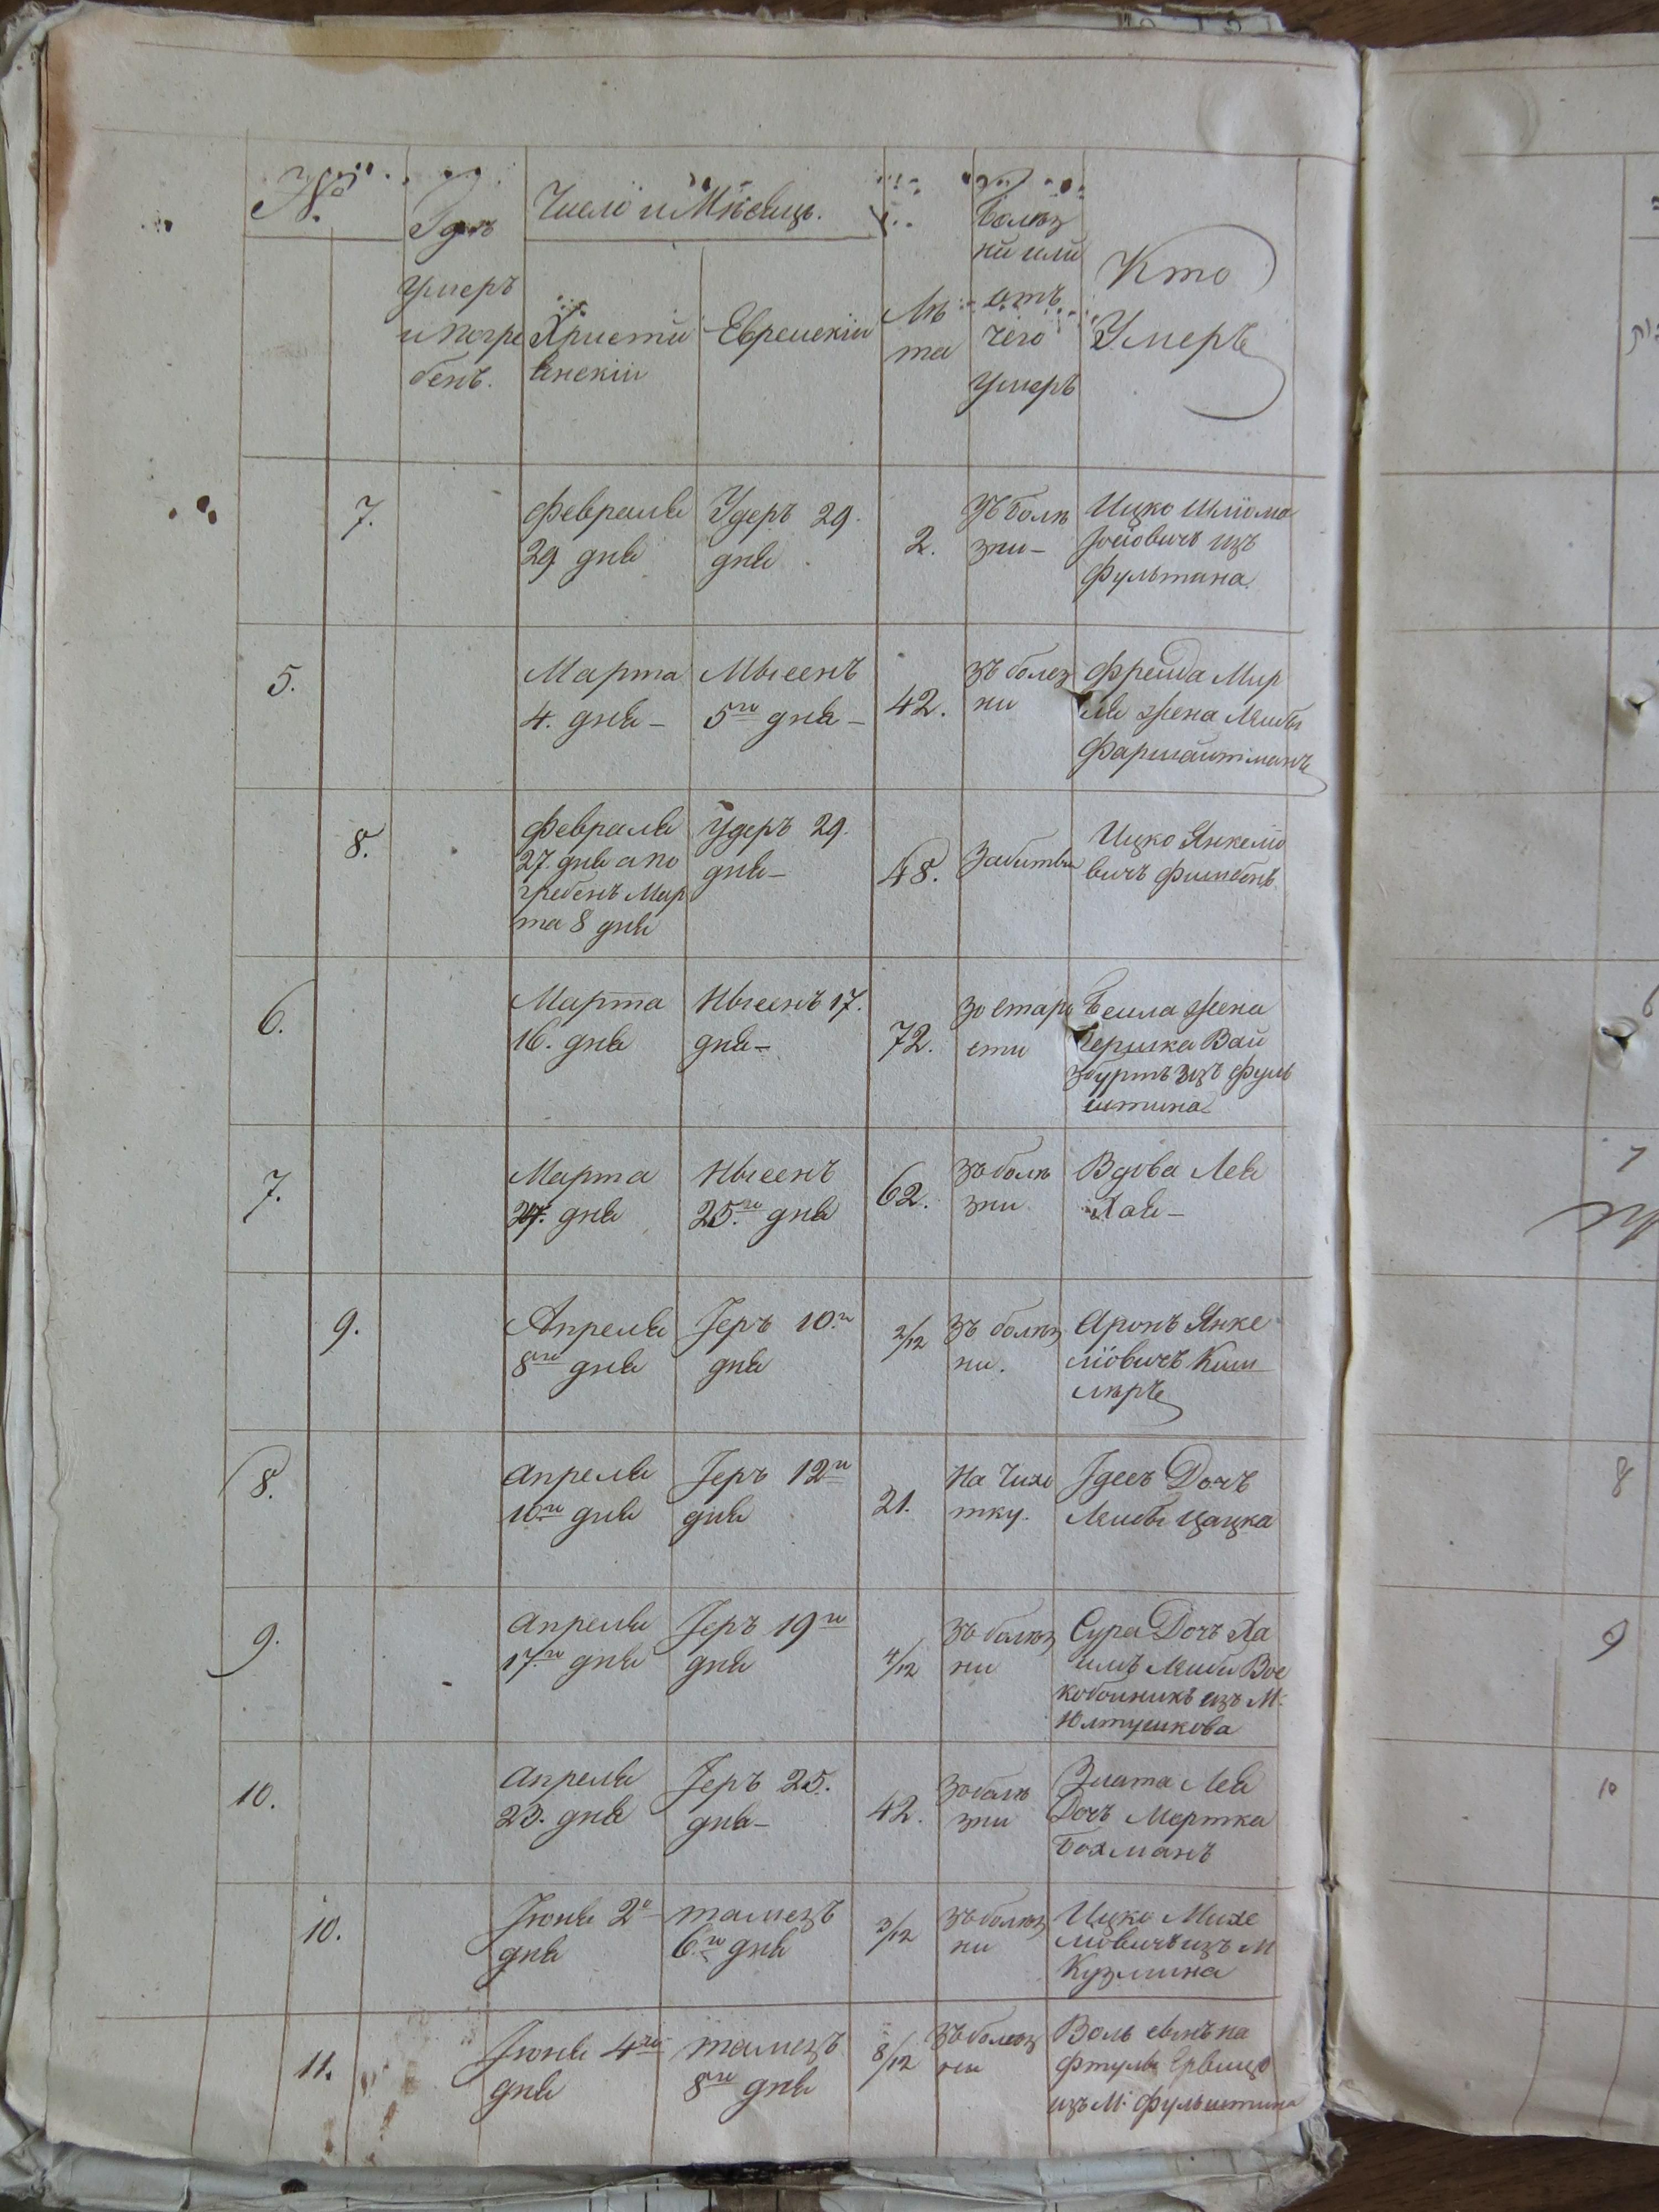 №
Где
умеръ
и погре
бенъ.
Число и Мѣсяцъ.
Христи
анскій
Еврейскій
Лѣ
та
Болѣз
ни или
отъ
чего
умеръ
Кто
Умеръ
7.
Февраля
29 дня
Удеръ 29.
дня
2.
Зъ болѣ
зни –
Ицко Шліома
Іосіовичъ изъ
Фульштина.
5.
Марта
4. дня –
Мысенъ
5го дня –
42.
зъ болез
ни
Фрейда Мир
ля жена Лейбы
8.
Февраля
27 дня а по
гребенъ Мар
та 8 дня
Удеръ 29.
дня –
48.
Забитый
Ицко Янкеліо
вичъ
6.
Марта
16. дня
Нысенъ 17.
дня –
72.
зо старо
сти
Бейла жена
Берика Вай
збуртъ зъ Фуль
штина
7.
Марта
24. дня
Нысенъ
25.го дня
62.
зъ болѣ
зни
Вдова Лея
Хая –
9.
Апреля
8го дня
Іеръ 10.го
дня
2/12
Зъ болѣз
ни.
Аронъ Янке
ліовичъ Киш
лѣръ
8.
Апреля
10го дня
Іеръ 12го
дня
21.
На Чихо
тку.
Ідесъ Дочъ
Лейбы Цацка
9.
Апреля
17го дня
Іеръ 19го
дня
4/12
Зъ болѣз
ни
Сура Дочъ Ха
имъ Лейби Вос
кобойникъ изъ М.
Юлтушкова
10.
Апреля
23. дня
Іеръ 25.
дня –
42.
Зъ болѣ
зни
Злата Лея
Дочъ Мортка
Бохманъ
10.
Іюня 2го
дня
тамезъ
6го дня
3/12
Зъ болѣз
ни
Ицко Михе
ліовичъ изъ М
Кузмина
11.
Іюня 4го
дня
тамезъ
8го дня
8/12
Зъ болѣз
ни
Воль сынъ На
фтулы
изъ М. Фульштина
7
8
9
10